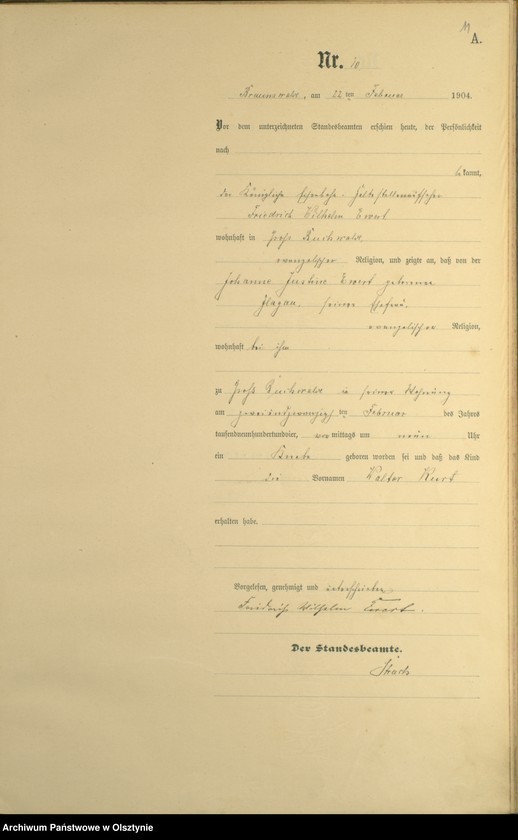 A.
Nr. 10
Braunswalde, am 22 ten Februar 1904.
Vor dem unterzeichneten Standesbeamten erschien heute, der Persönlichkeit
nach
bekannt,
der Königliche Eisenbahn-Haltestellenaufseher
Friedrich Wilhelm Ewert
wohnhaft in Groß Buchwalde
evangelischer Religion, und zeigte an, daß von der
Johanne Justine Ewert geborene
seiner Ehefrau
evangelischer Religion,
wohnhaft bei ihm
zu Groß Buchwalde in seiner Wohnung
am zweiundzwanzigsten ten Februar des Jahres
tausendneunhundertundvier, vor mittags um neun Uhr
ein Knabe geboren worden sei und daß das Kind
die Vornamen Walter Kurt
erhalten habe.
Vorgelesen, genehmigt und unterschrieben
Friedrich Wilhelm Ewert.
Der Standesbeamte.
Archiwum Państwowe w Olsztynie